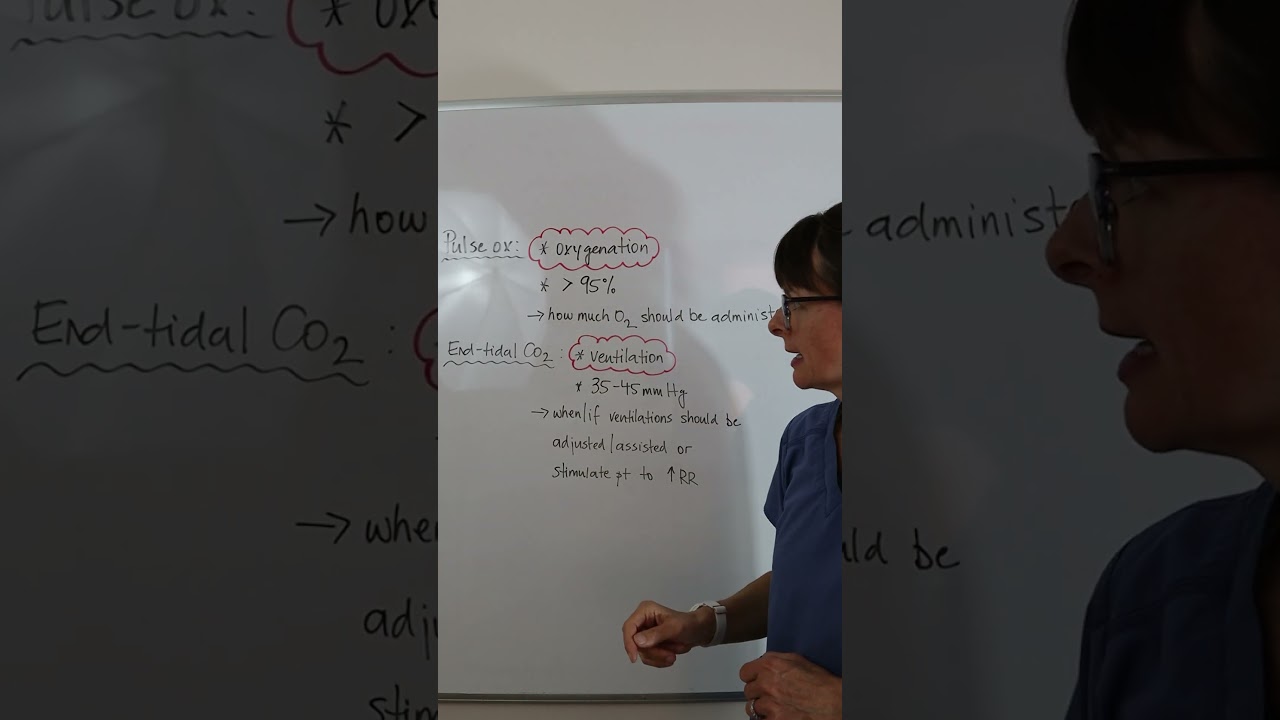 Pulse ox: * oxygenation
* > 95%
→ how much O₂ should be administ
End-tidal CO₂ : * ventilation
* 35-45 mmHg
→ when/if ventilations should be
adjusted/assisted or
stimulate pt to ↑ RR